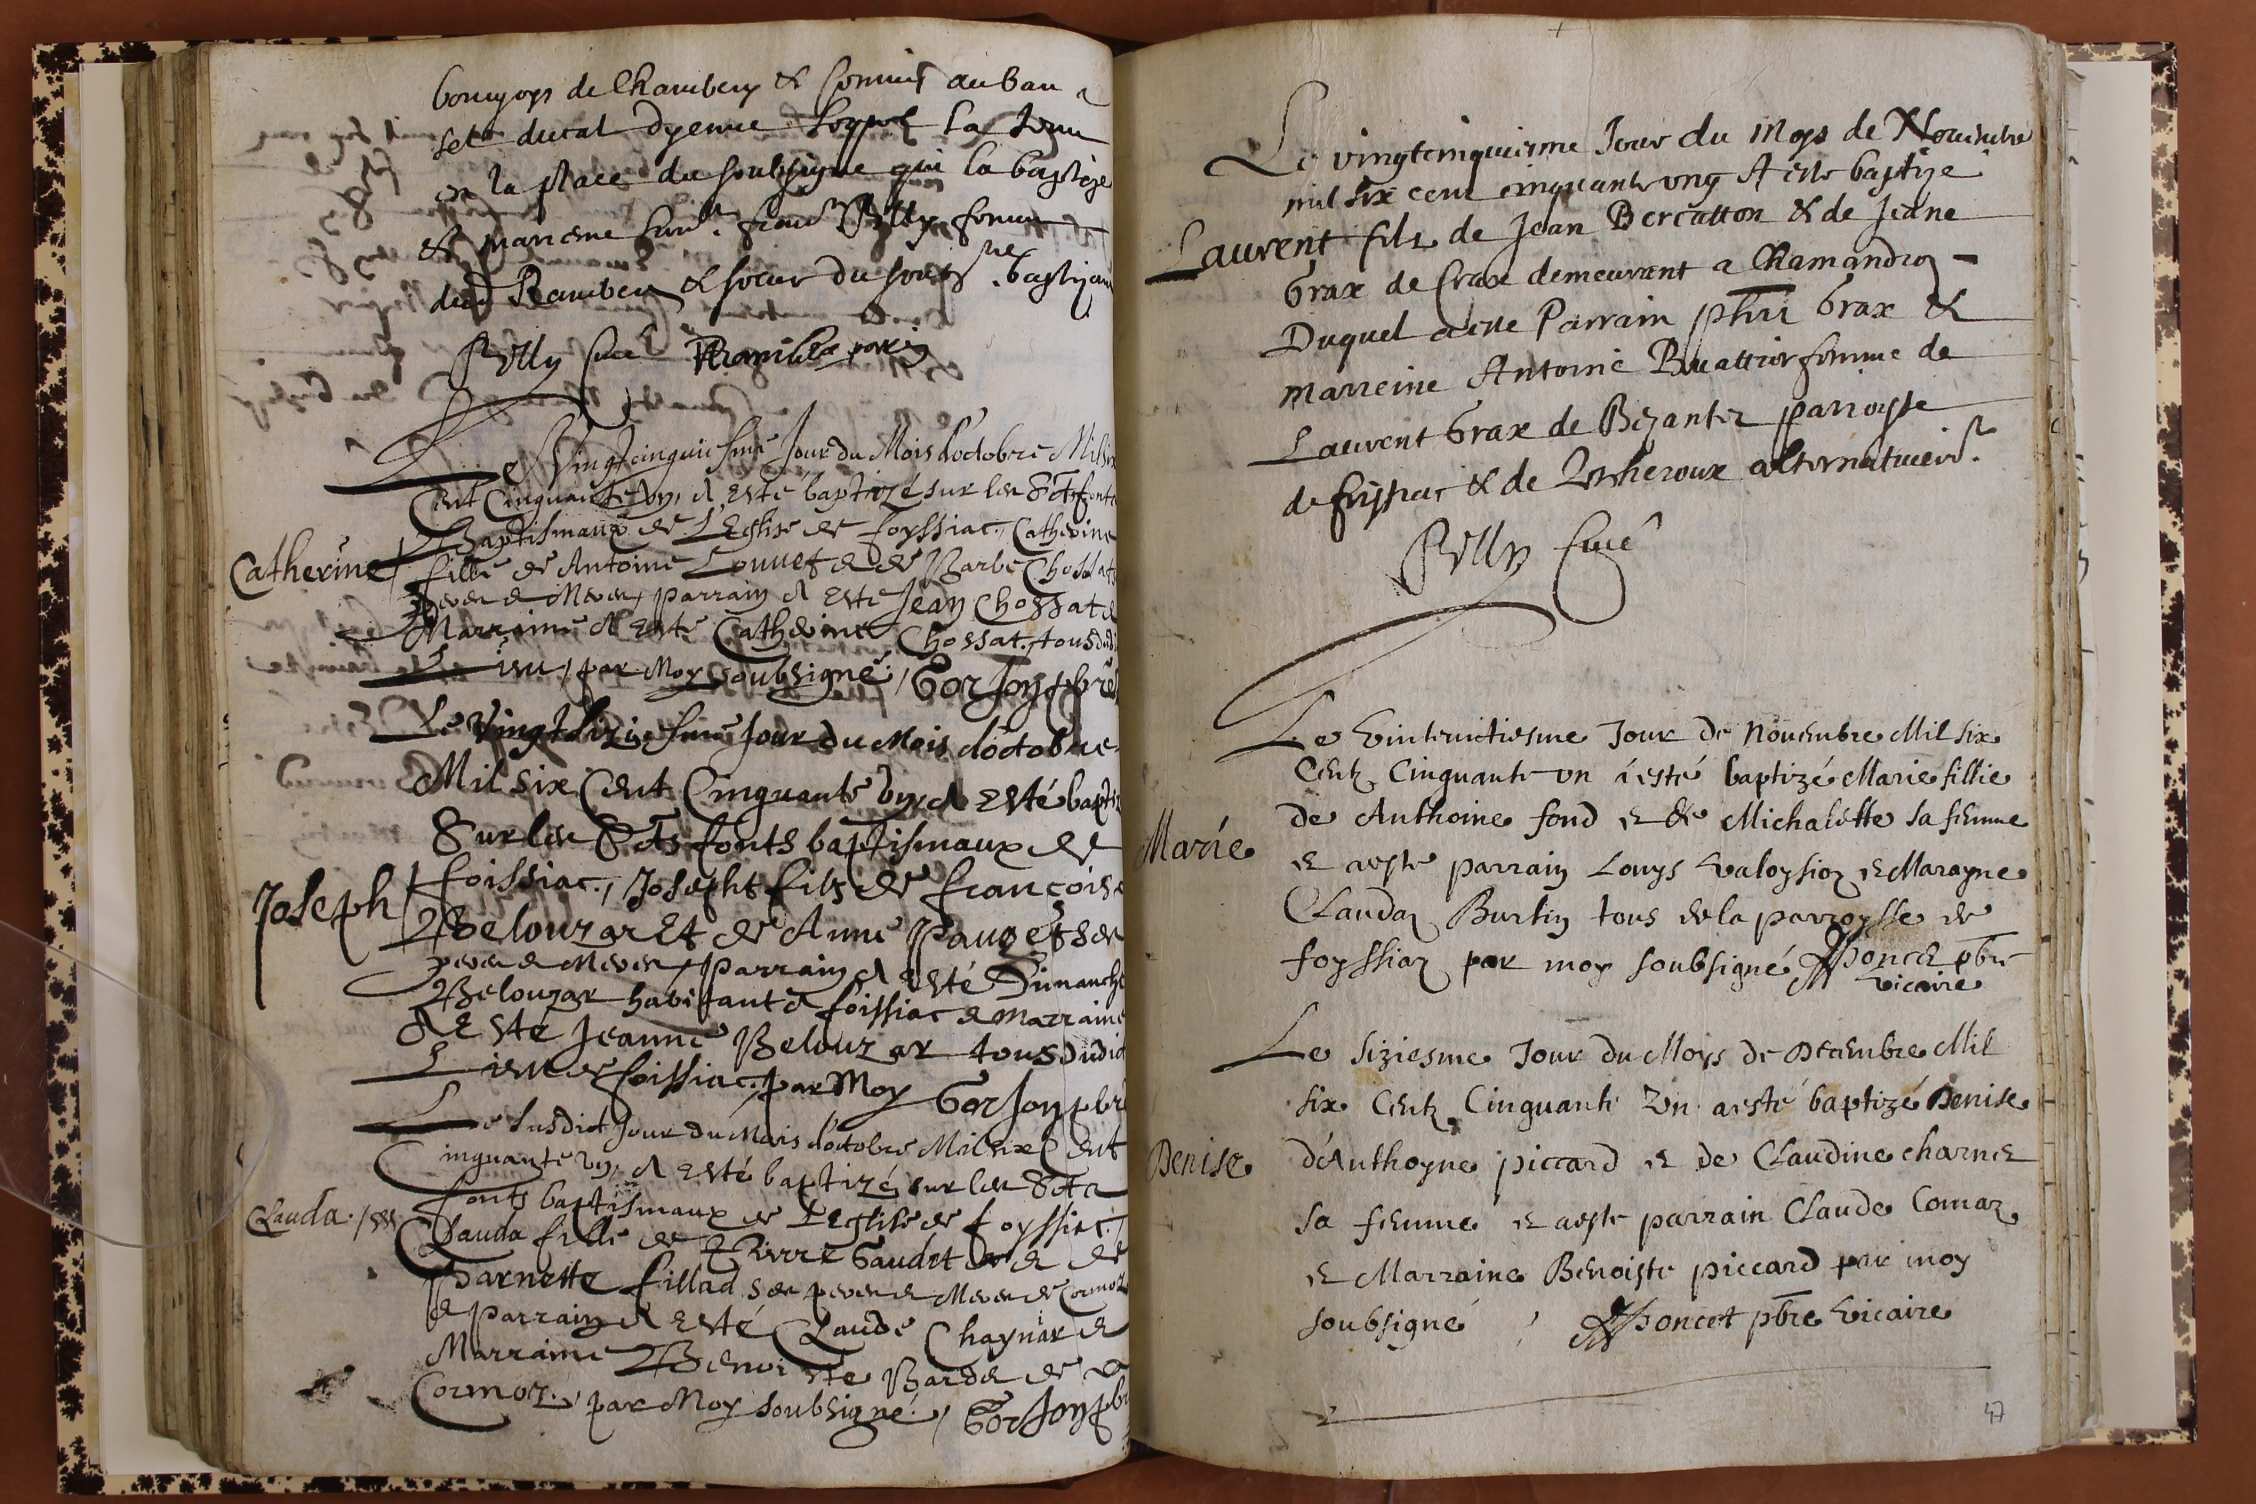 bourgoys de Chambery & Commis au ban
ducal dyenne la tenu
en la place du soubsigne qui la baptize
& mareme Billy femme
dud Rambert & soeur du soubs.ne baptizant
Billy Curé Rambert parrin
Le Vingtcinquiesme Jour du Mois d'octobre Mil six
Cent Cinquante Vn, A Esté baptizé sur les Scts fonts
Baptismaux de L'Eglise de foyssiac, Catherine
Catherine
fille de Antoine Louuet & de Barbe Chossat
peres & Meres, parrain A Esté Jean Chossat &
Marraine A Esté Catherine Chossat, tous dud
Lieu, par Moy soubsigné, Gorjon pbre
Le Vingt Siziesme Jour du Mois d'octobre
Mil six Cent Cinquante Vn, A Esté baptizé
Sur les Scts fonts baptismaux de
Joseph
foissiac, Joseph fils de françois
Belouzar Et de Anne Pauget ses
peres & Meres, parrain A Esté Dimanche
Belouzar habitant A foissiac & marraine
A Esté Jeanne Belouzar tous dudict
Lieu de foissiac, par Moy Gorjon pbre
Le Susdict Jour du Mois d'octobre Mil six Cent
Cinquante Vn, A Esté baptizé sur les Scts
fonts baptismaux de L'Eglise de foyssiac,
Clauda
Clauda fille de Pierre Gaudet & de
Parnette fillad ses peres & Meres de Cormoz
& parrain A Esté Claude Chaynar &
Marraine Benoiste Barde de
Cormoz, par Moy soubsigné, Gorjon pbre
Le vingtcinquiesme Jour du Mois de Nouembre
mil six cens cinquante vng A este baptize
Laurent fils de Jean Bercatton & de Jeane
Grax de Crax demeurant a Chamandroy
Duquel a este Parrain phri Grax &
marreine Antoine Buattier femme de
Laurent Grax de Bezantez parroysse
de & de alternatiuem.t
Billy Curé
Le Vintunictiesme Jour de Nouembre Mil six
Centz Cinquante vn a esté baptizé Marie fillie
Marie
de Anthoine fond & de Michalette sa femme
& a este parrain Louys Valoysion & Marayne
Claudaz Burtin tous de la parroysse de
foyssiaz par moy soubsigné Poncet pbre
vicaire
Le Siziesme Jour du Moys de Decembre Mil
six Centz Cinquante Vn a esté baptizé Denise
Denise
d'Anthoyne piccard & de Claudine charnez
sa femme & a este parrain Claude Comaz
& Marraine Benoiste piccard par moy
soubsigné Poncet pbre vicaire
47